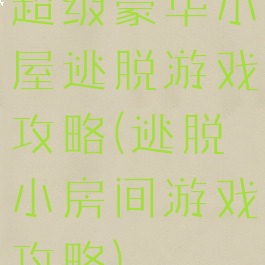 超级豪华小
屋逃脱游戏
攻略(逃脱
小房间游戏
攻略)